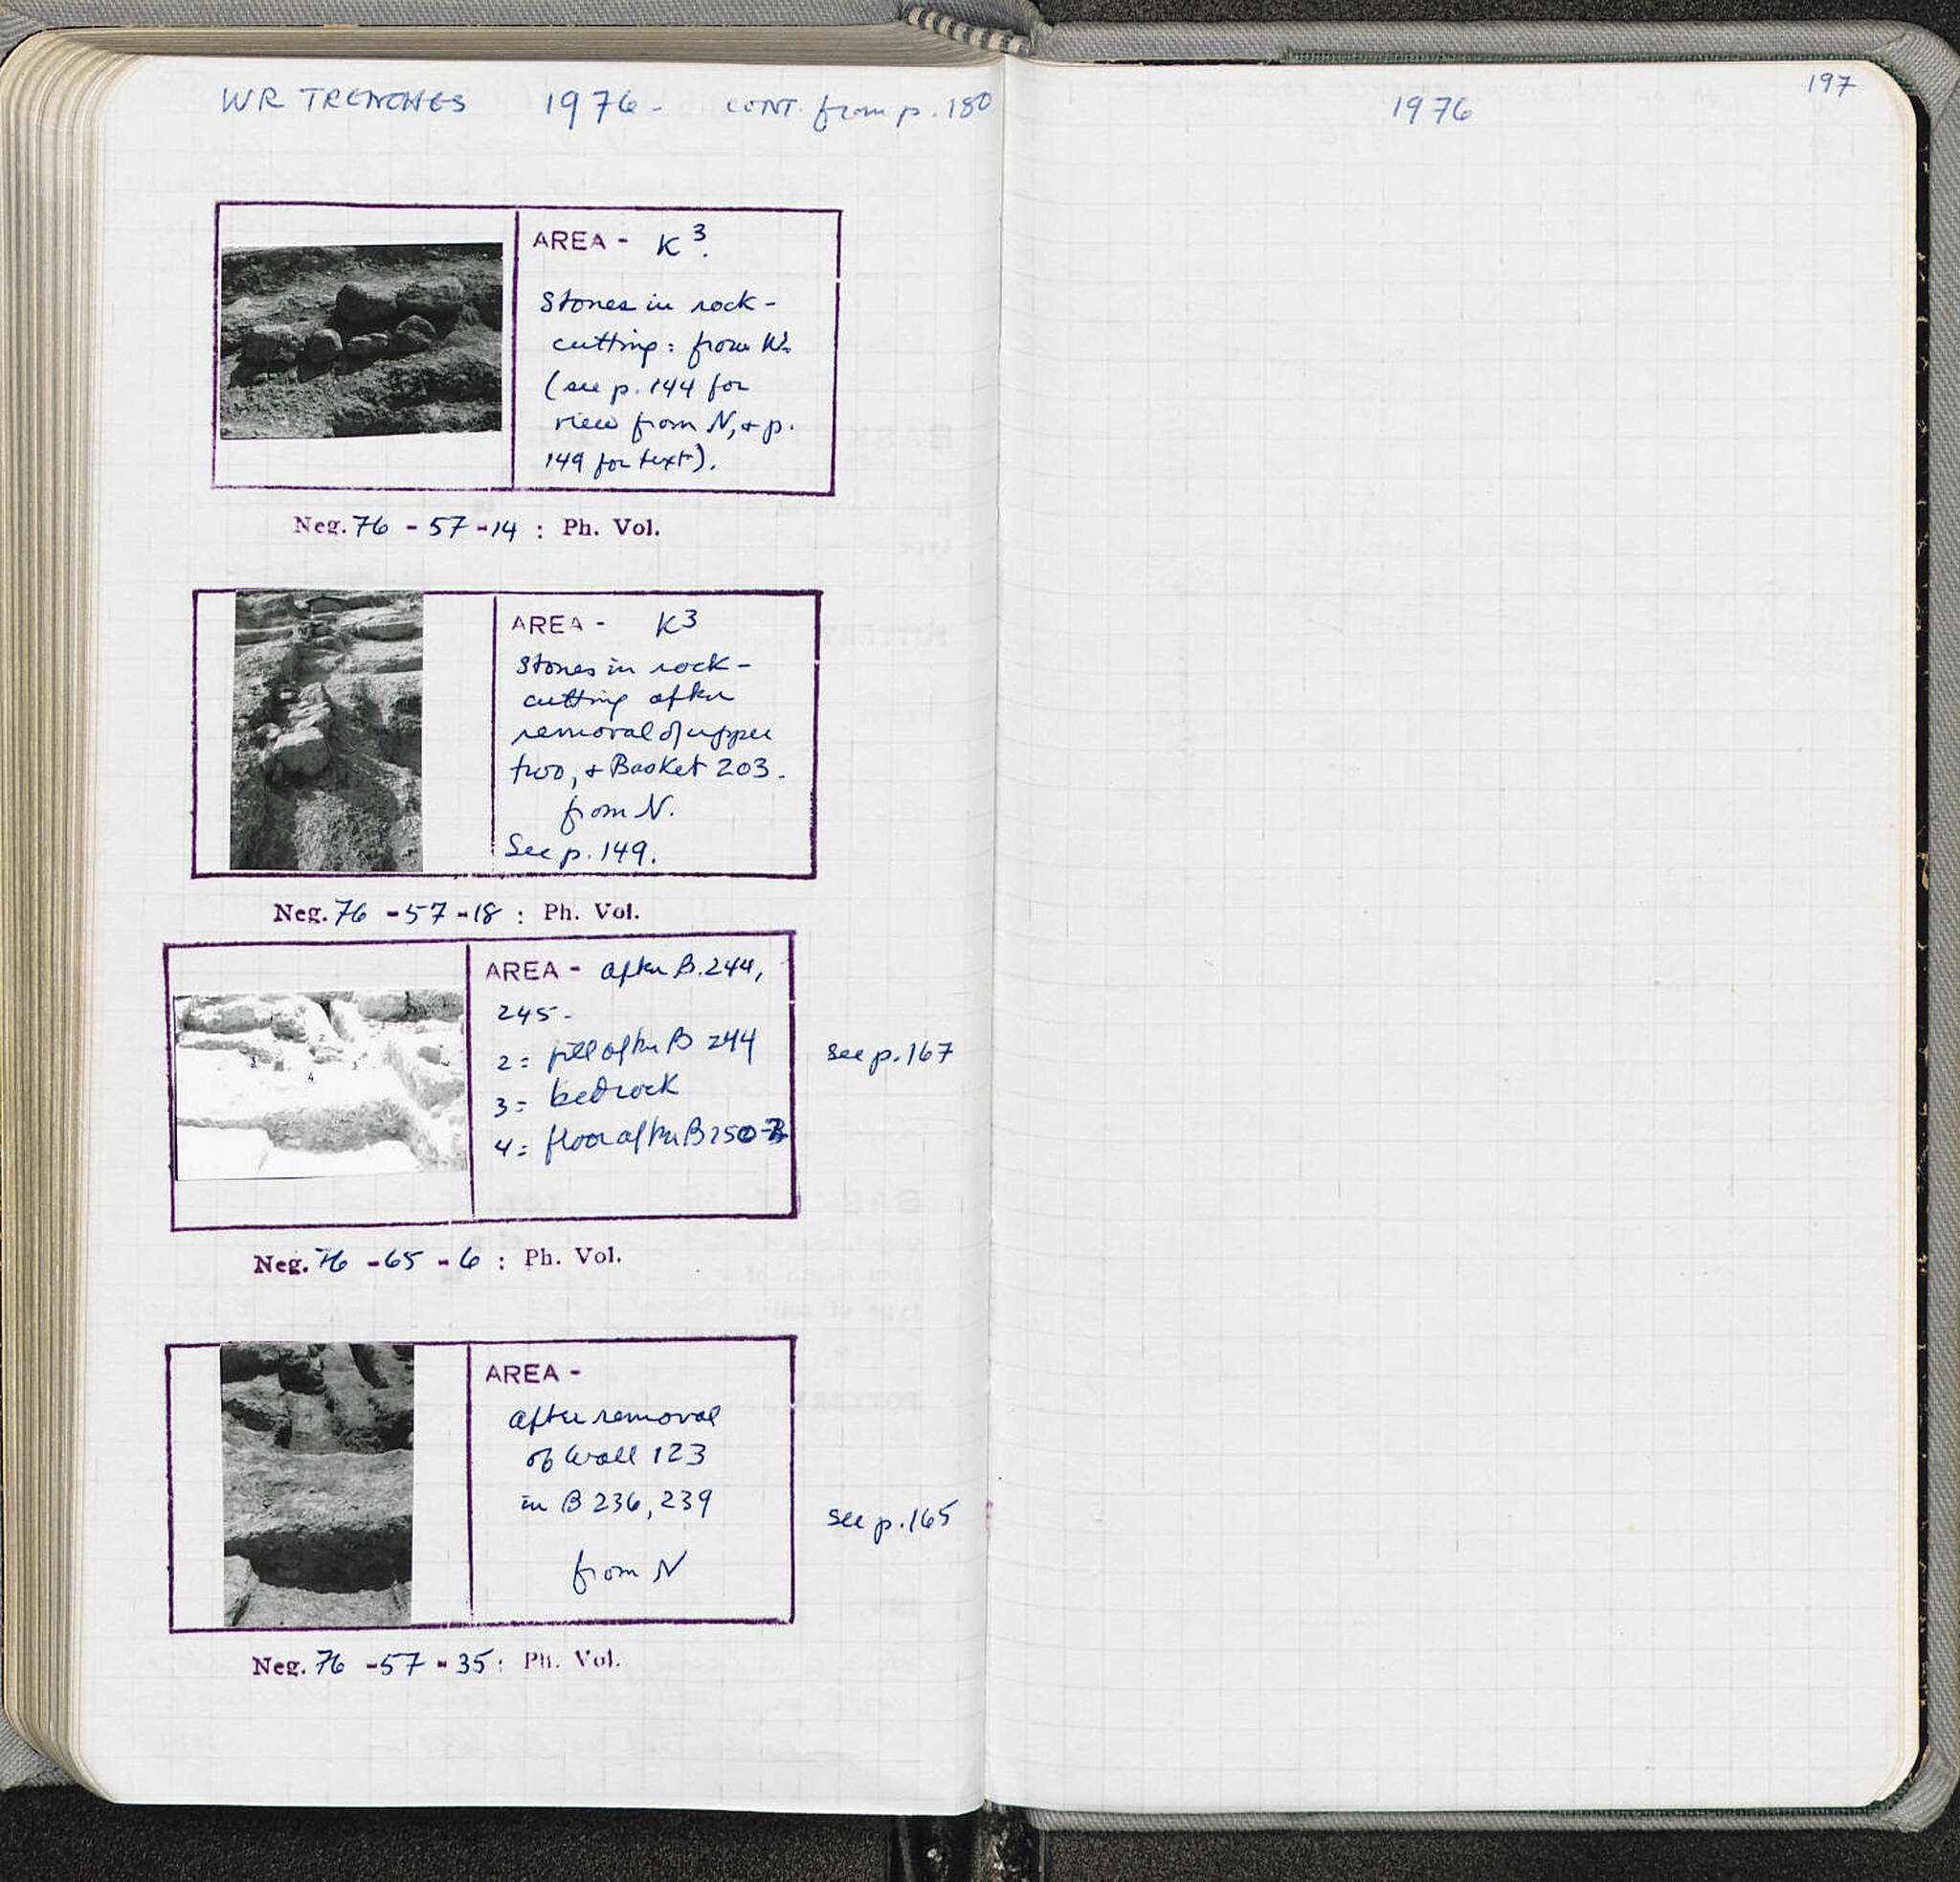 WR TRENCHES 1976 - CONT. from p. 180
AREA - K3.
Stones in rock-
cutting: from W.
(see p. 144 for
view from N, + p.
149 for text).
Neg. 76 - 57 - 14 : Ph. Vol.
AREA - K3
Stones in rock-
cutting after
removal of upper
two, + Basket 203.
from N.
See p. 149.
Neg. 76 - 57 - 18 : Ph. Vol.
AREA - after B. 244,
245-
2 = fill after B 244
3 = bedrock
4 = floor after B 250-
see p. 167
2
3
4
3
Neg. 76 - 65 - 6 : Ph. Vol.
AREA -
after removal
of Wall 123
in B 236, 239
from N
see p. 165
Neg. 76 - 57 - 35 : Ph. Vol.
1976
197